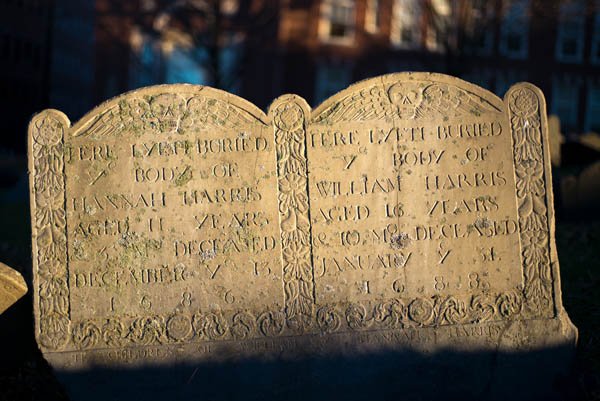 HERE LYETH BURIED
Y BODY OF
HANNAH HARRIS
AGED 11 YEARS
DECEASED
DECEMBER Y 13
1686
HERE LYETH BURIED
Y BODY OF
WILLIAM HARRIS
AGED 16 YEARS
& 10 Mo DECEASED
JANUARY Y 31
1688
CHILDREN OF WILLIAM HANNAH HARRIS